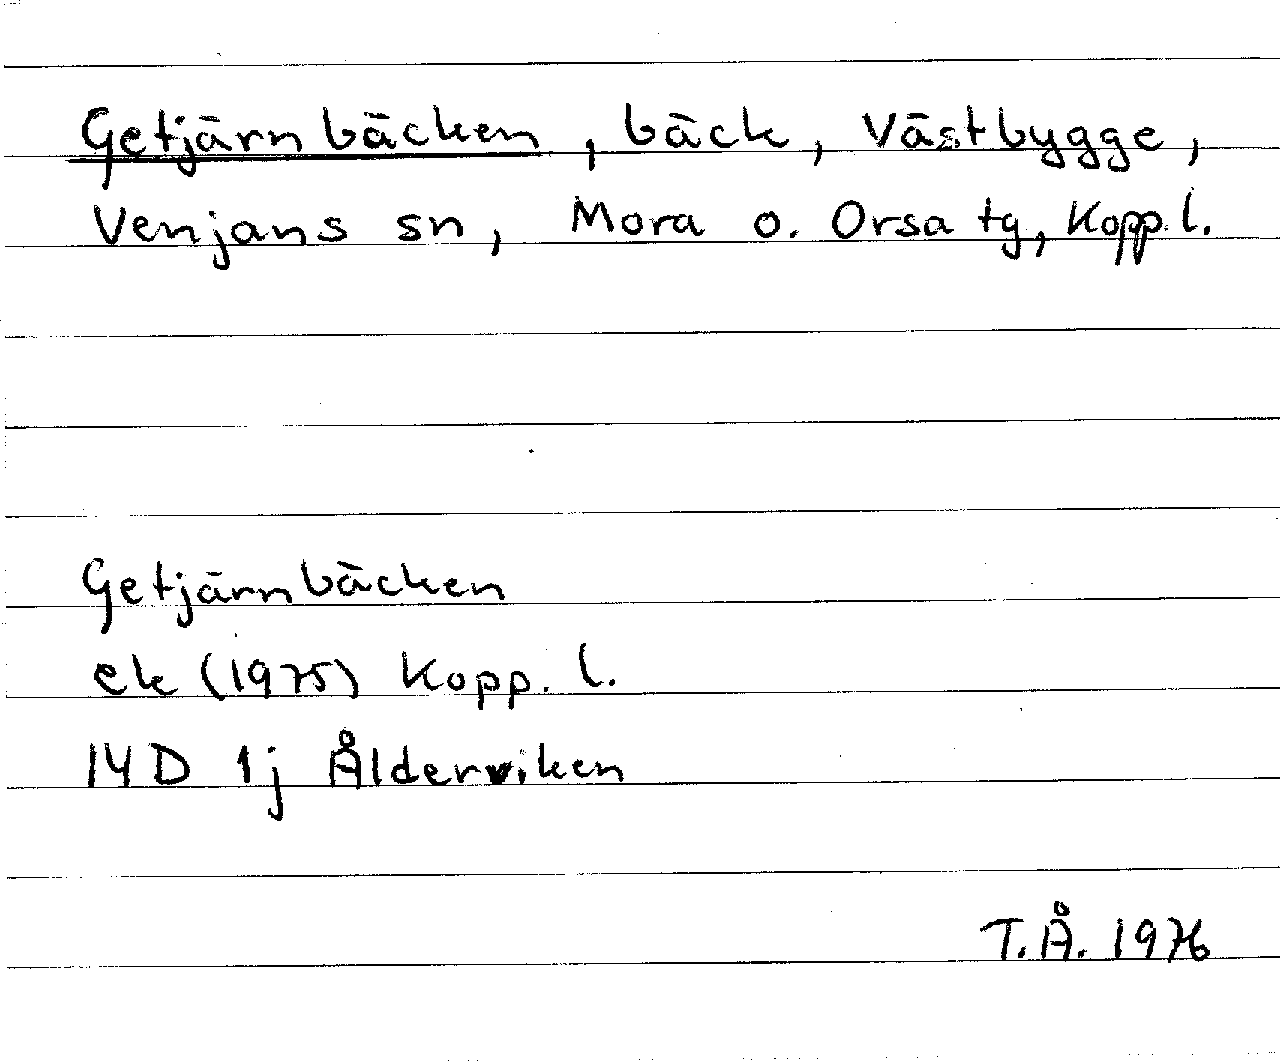 Getjärnbäcken, bäck, Västbygge,
Venjans sn, Mora o. Orsa tg, Kopp. l.
Getjärnbäcken
ek (1975) Kopp. l.
14D 1j Ålderviken
T.Å. 1976